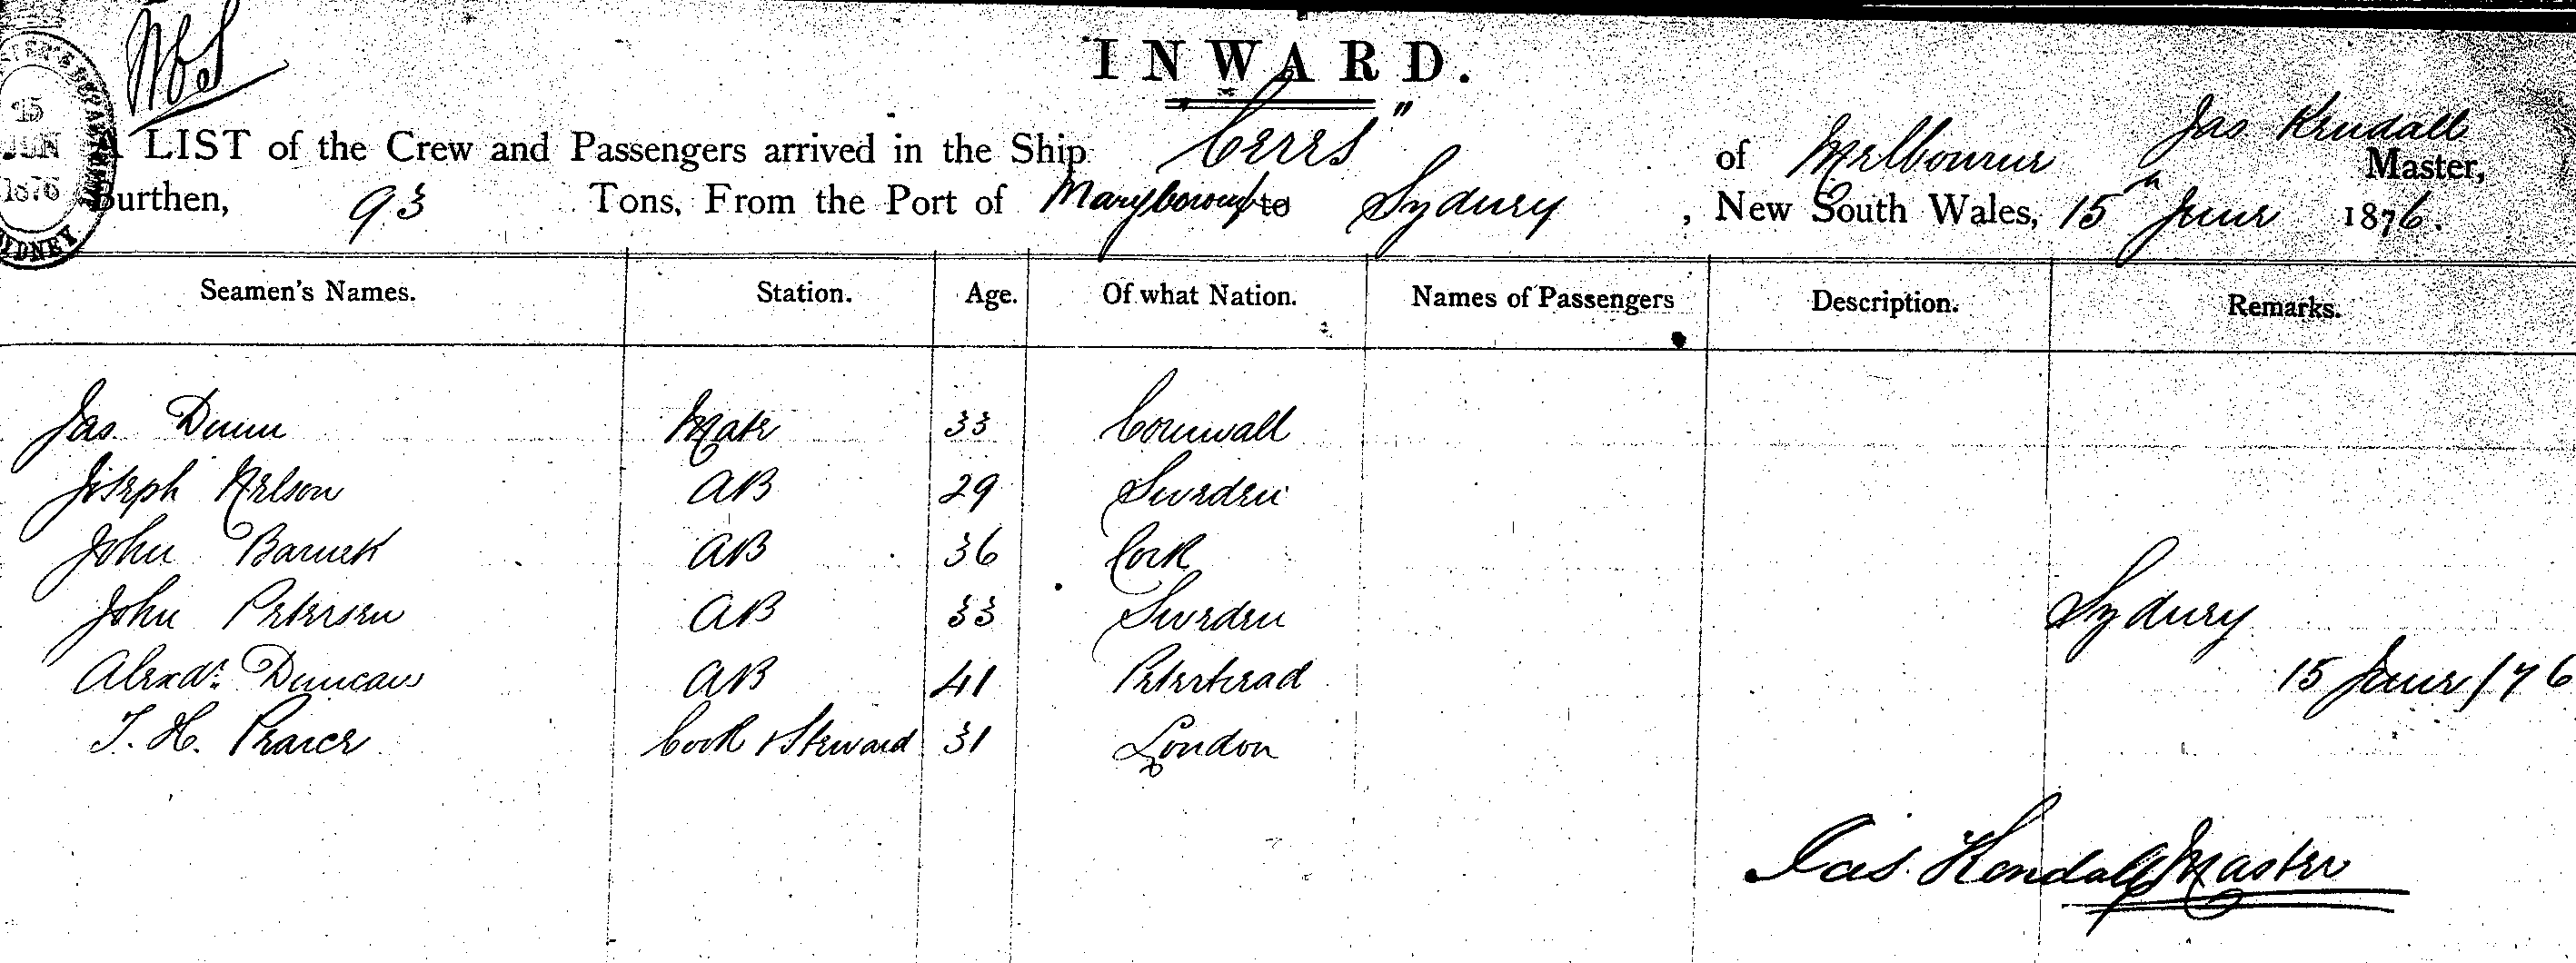 INWARD.
A LIST of the Crew and Passengers arrived in the Ship "Ceres" of Melbourne Jas Kendall Master,
Burthen, 93 Tons, From the Port of Maryborough to Sydney, New South Wales, 15th June 1876.
15
JUN
1876
SYDNEY
Seamen's Names. Station. Age. Of what Nation. Names of Passengers Description. Remarks.
Jas Dunn Mate 33 Cornwall
Joseph Nelson AB 29 Sweden
John AB 36 Cork
John Petersen AB 33 Sweden Sydney
Alexdr. Duncan AB 41 Peterhead 15 June /76
T. H. Pearce Cook & Steward 31 London
Jas. Kendall Master